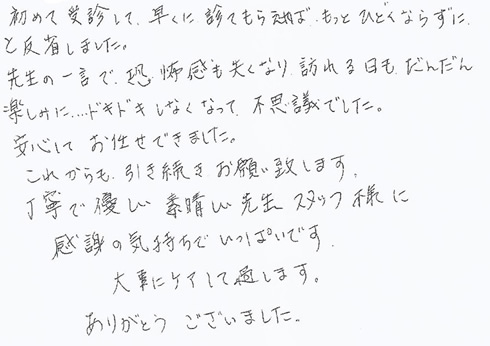 初めて受診して、早くに診てもらえれば、もっとひどくならずに、
と反省しました。
先生の一言で、恐怖感も失くなり、訪れる日も、だんだん
楽しみに....ドキドキしなくなって、不思議でした。
安心して お任せできました。
これからも、引き続き お願い致します。
丁寧で優しい 素晴しい先生、スタッフ様に
感謝の気持ちで いっぱいです。
大事にケアして過します。
ありがとう ございました。